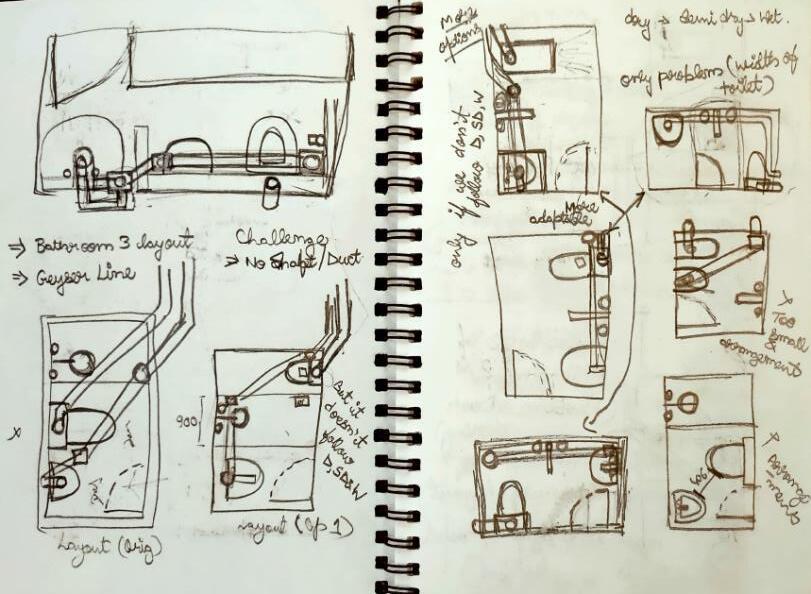 ⇒ Bathroom 3 layout
⇒ Geyser Line
Challenge
⇒ No Shaft/Duct
x
Layout (Orig)
900
But it
doesn't
follow
D, SD & W
Layout (Op 1)
More
options
only if we don't
follow D, SD, W
dry → semi dry → wet.
only problem (width of
toilet)
More
adaptable
x Too
small
arrangement
x Arrange
ments